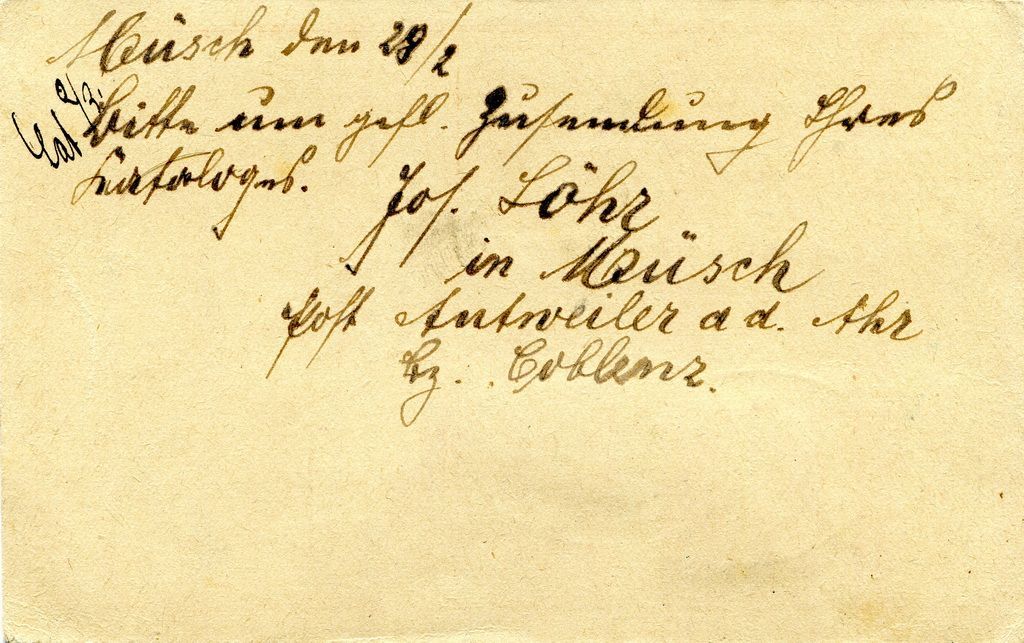 Müsch den 28/2
Bitte um gefl. Zusendung Ihres
Kataloges. Jos. Löhr
in Müsch
Post Antweiler a d. Ahr
Bz. Coblenz.
2/3.